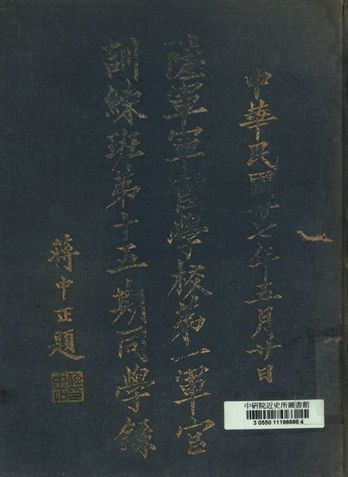 中華民國卅七年五月廿日
陸軍軍官學校第一軍官
訓練班第十五期同學錄
蔣中正題
中研院近史所圖書館
3 0550 11196696 4